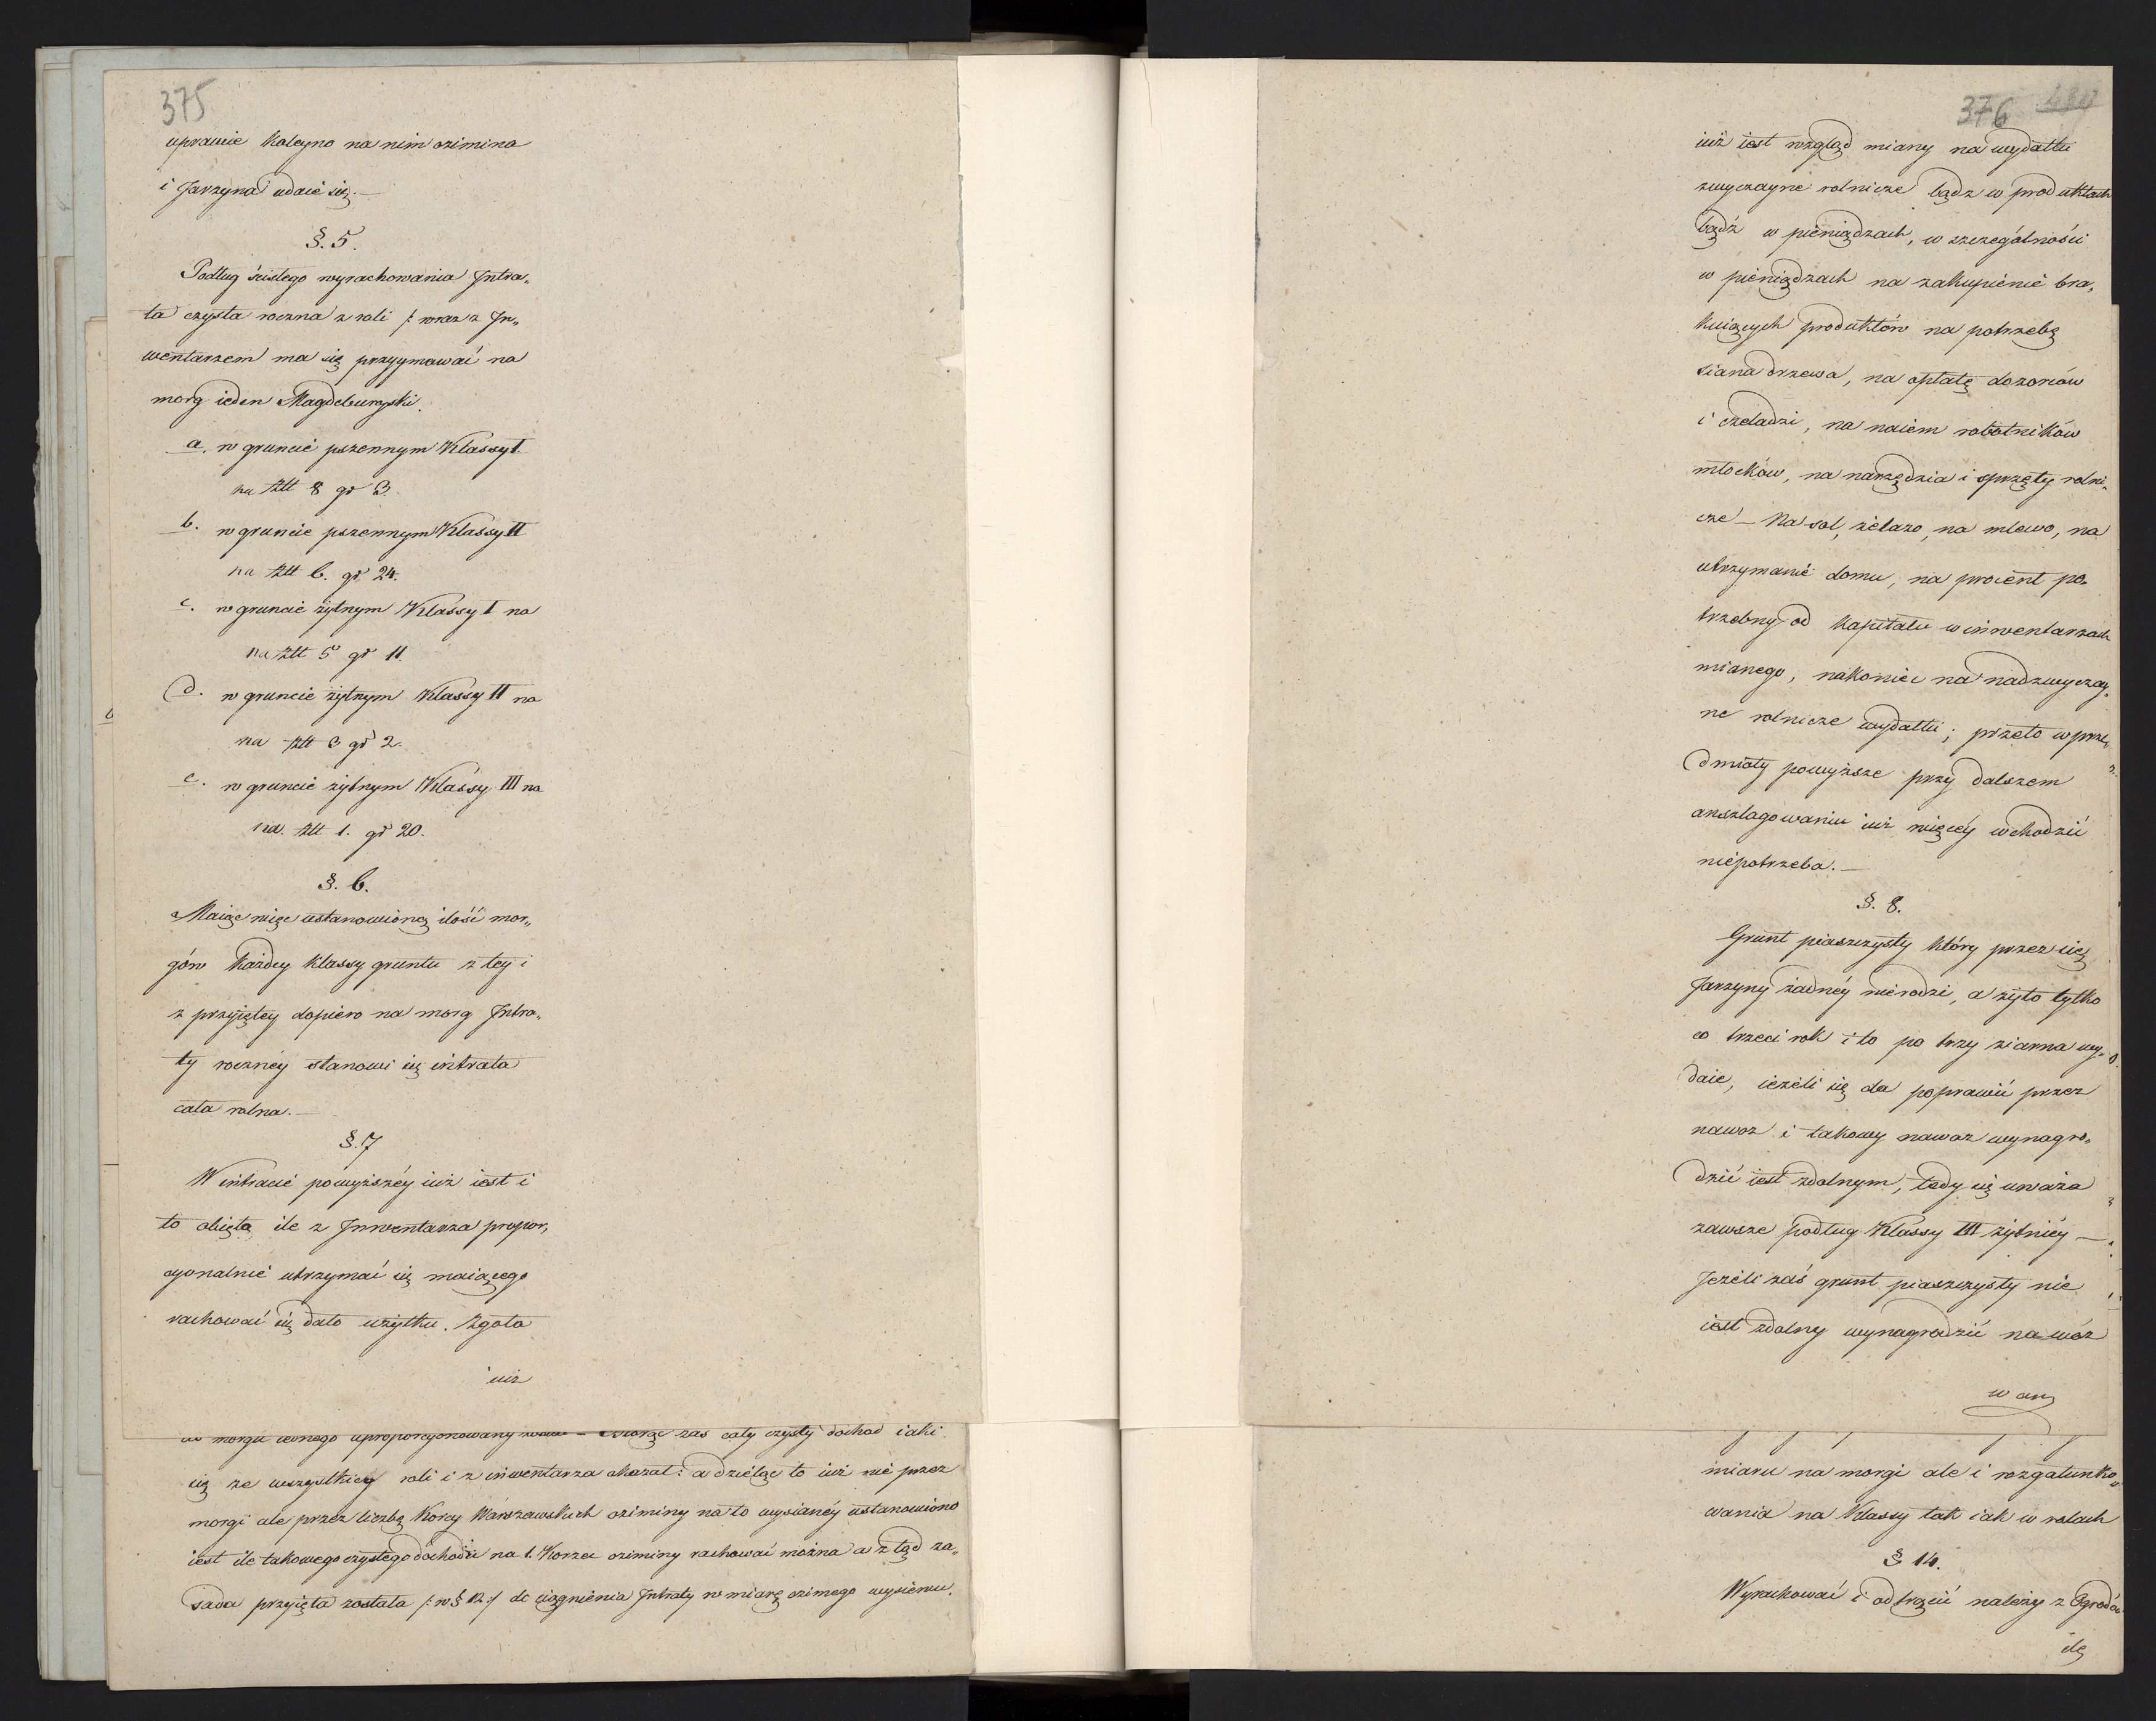 375
uprawie koleyno na nim ozimina
i Jarzyna udaie się. —
§. 5.
Podług ścisłego wyrachowania Intra„
ta czysta roczna z roli /: wraz z In„
wentarzem ma się przyymować na
morg ieden Magdeburgski.
a. w gruncie pszennym Klassy I.
na złt 8 gr 3.
b. w gruncie pszennym Klassy II
na złt 6. gr 24.
c. w gruncie żytnym Klassy I na
na złt 5 gr 11.
d. w gruncie żytnym Klassy II na
na złt 3 gr 2.
e. w gruncie żytnym Klassy III na
na. złt 1. gr 20.
§. 6.
Maiąc więc ustanowioną ilość mor„
gów każdey klassy gruntu z tey i
z przyiętey dopiero na morg Intra„
ty roczney stanowi się intrata
cała rolna. —
§. 7
W intracie powyższey iuż iest i
to obięta, ile z Inwentarza propor„
cyonalnie utrzymać się maiącego
rachować się dało użytku. Zgoła
iuż
morgu iednego uproporcyonowany zaś cały czysty dochod iaki
się ze wszystkiey roli i z inwentarza okazał: a dzieląc to iuż nie przez
morgi ale przez liczbę Korcy Warszawskich oziminy na to wysianey ustanowiono
iest ile takowego czystego dochodu na 1. Korzec oziminy rachować można a z tąd za„
sada przyięta została /: w § 12 :/ do ciągnienia Intraty w miarę ozimego wysiewu.
376
iuż iest wzgląd miany na wydatki
zwyczayne rolnicze bądz w produktach
bądź w pieniądzach, w szczególności
w pieniądzach na zakupienie bra„
kuiących produktów na potrzebę
siana drzewa, na opłatę dozorców
i czeladzi, na naiem robotników
młocków, na narzędzia i sprzęty rolni„
cze — Na sol, żelazo, na mlewo, na
utrzymanie domu, na procent po
trzebny od kapitału w inwentarzach
mianego, nakoniec na nadzwyczay„
ne rolnicze wydatki; przeto w prze„
dmioty powyższe przy dalszem
anszlagowaniu iuż więcey wchodzić
niepotrzeba. —
§. 8.
Grunt piaszczysty który przez się
Jarzyny żadney nierodzi, a żyto tylko
co trzeci rok i to po trzy ziarna wy„
daie, ieżeli się da poprawić przez
nawoz i takowy nawoz wynagro„
dzić iest zdolnym, tedy się uważa
zawsze podług Klassy III żytniey —
Jeżeli zaś grunt piaszczysty nie
iest zdolny wynagrodzić nawóz
miaru na morgi ale i rozgatunko„
wania na Klassy tak iak w rolach
§ 14.
Wyrachować i odtrącić należy z Ogrodów
ilę